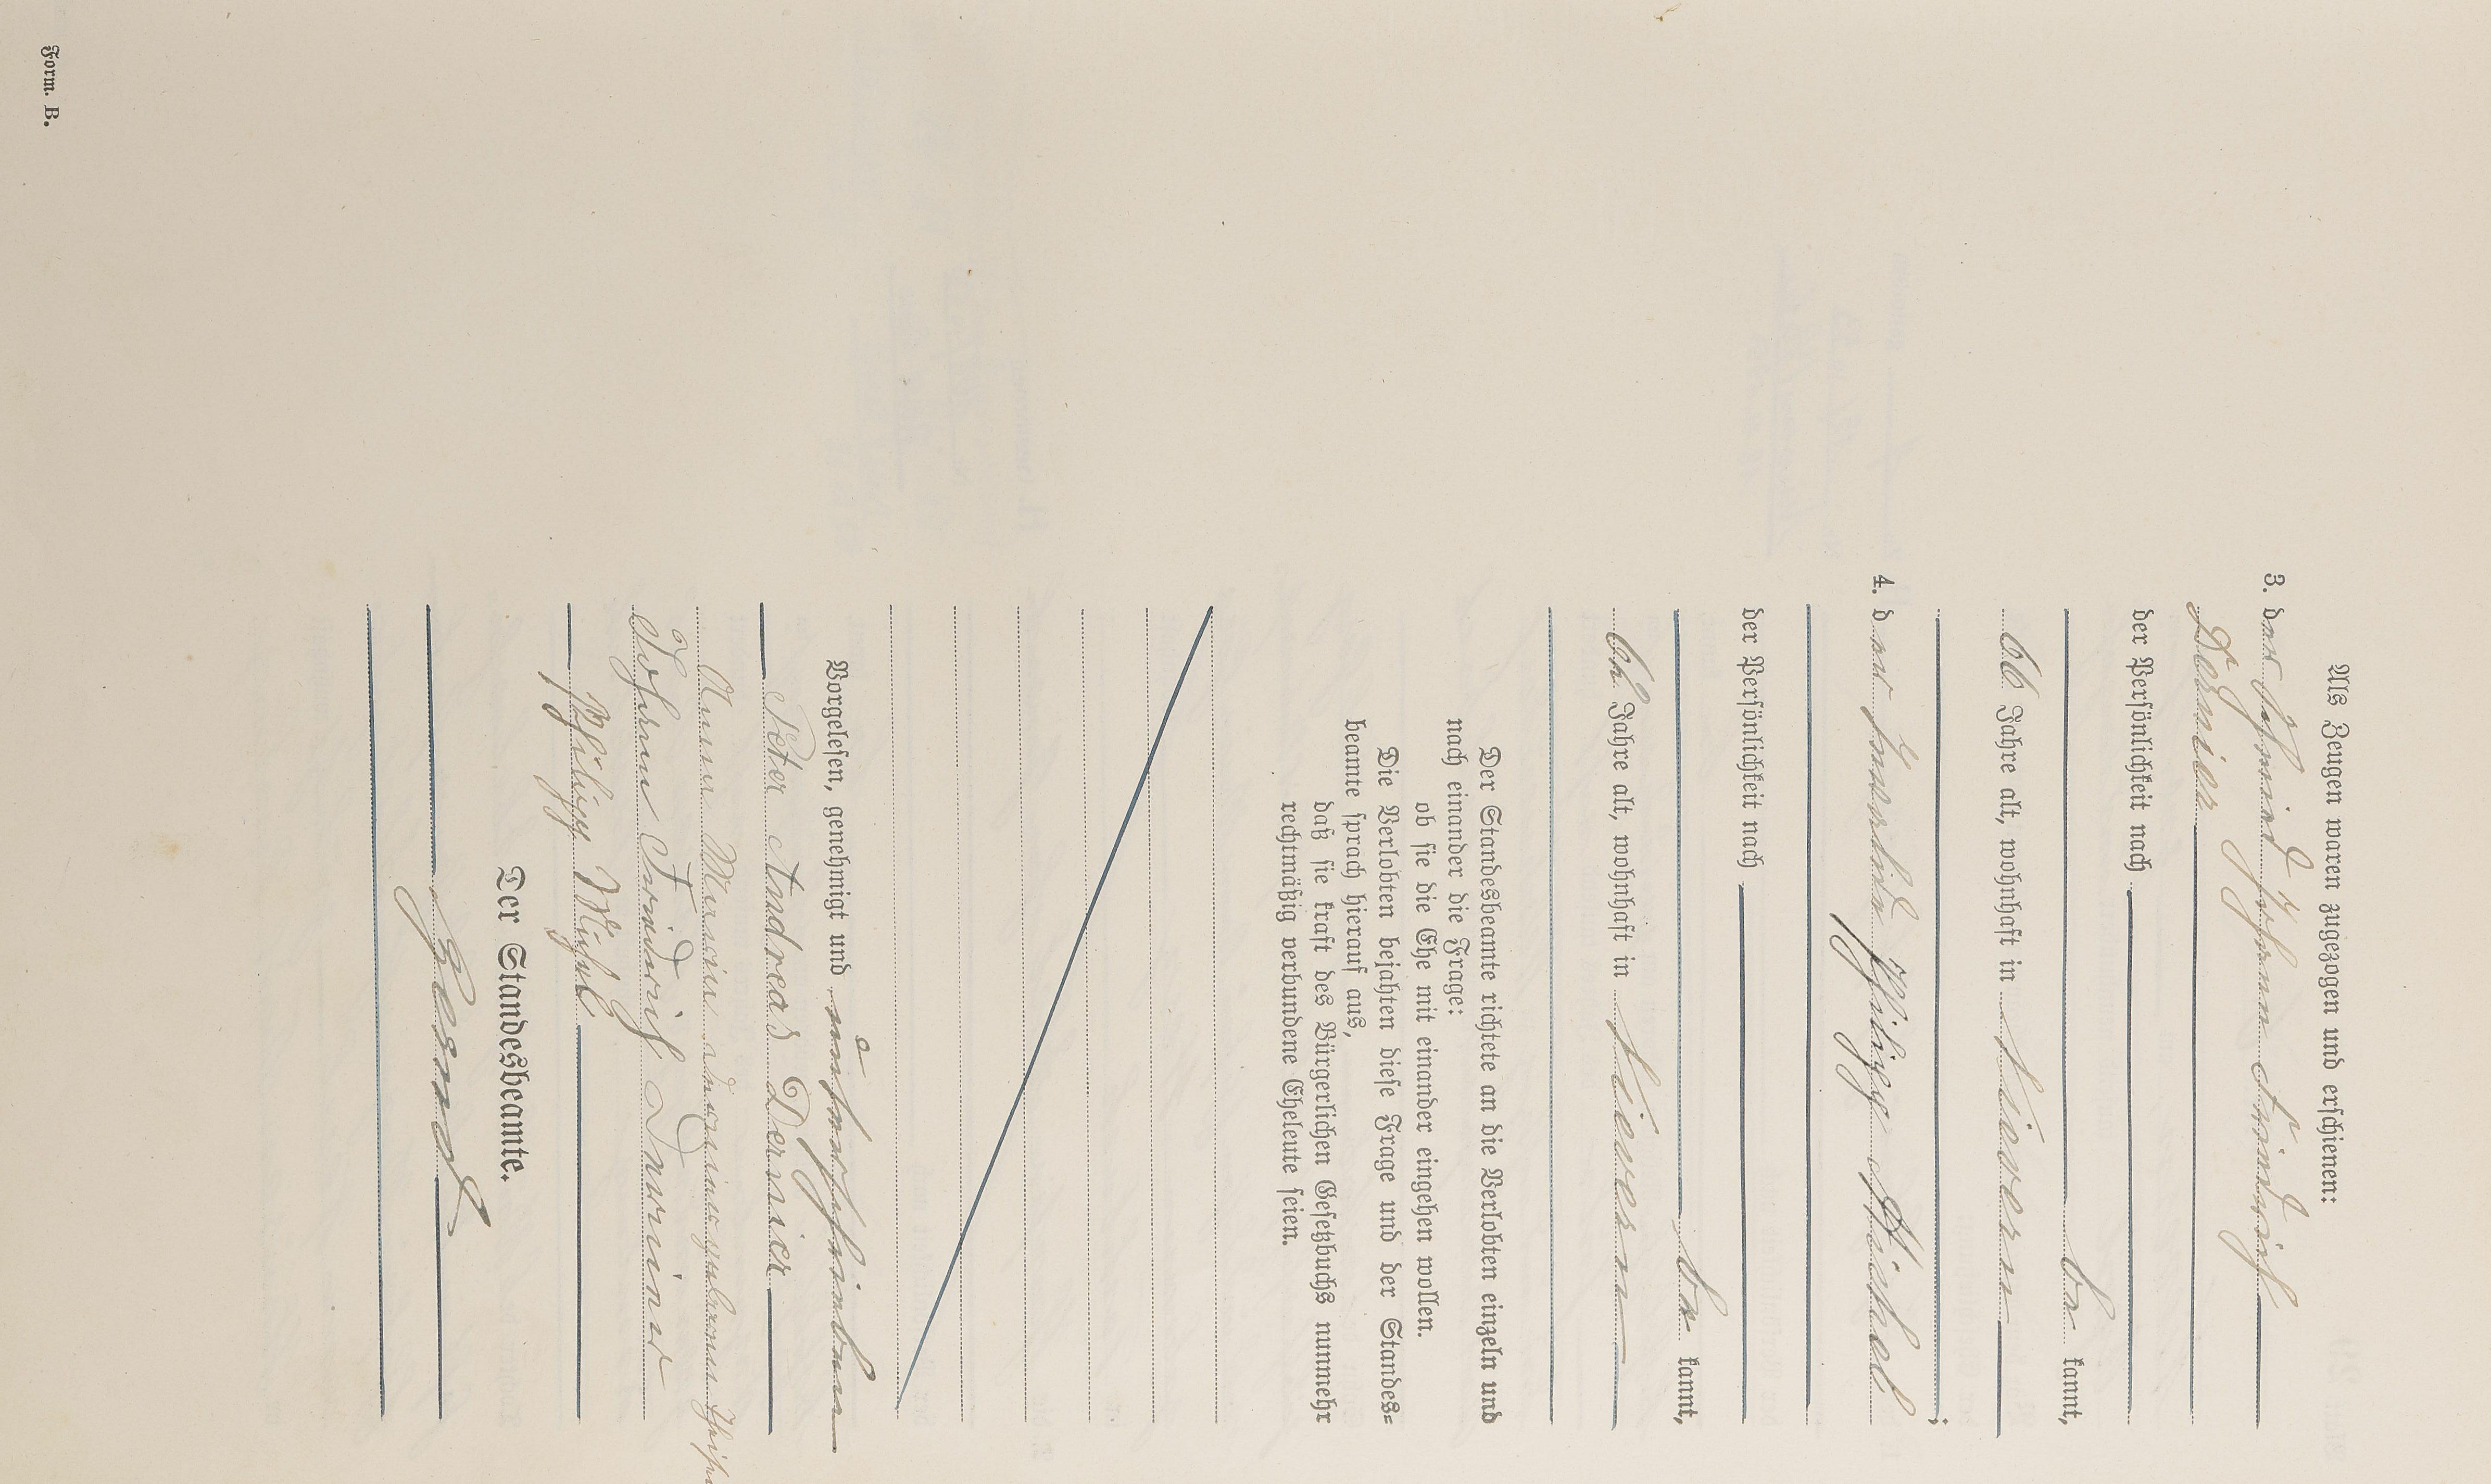 Als Zeugen waren zugezogen und erschienen:
3. der Johann Friedrich
Dernier
der Persönlichkeit nach
be kannt,
66 Jahre alt, wohnhaft in Nievern
;
4. d er Invalide Philipp Michel
der Persönlichkeit nach
be kannt,
Jahre alt, wohnhaft in Nievern
Der Standesbeamte richtete an die Verlobten einzeln und
nach einander die Frage:
ob sie die Ehe mit einander eingehen wollen.
Die Verlobten bejahten diese Frage und der Standes-
beamte sprach hierauf aus,
daß sie kraft des Bürgerlichen Gesetzbuchs nunmehr
rechtmäßig verbundene Eheleute seien.
Vorgelesen, genehmigt und unterschrieben
Peter Andreas Dernier
Anna Maria Dernier geborene
Johann Friedrich Dernier
Philipp Michel
Der Standesbeamte.
Form. B.